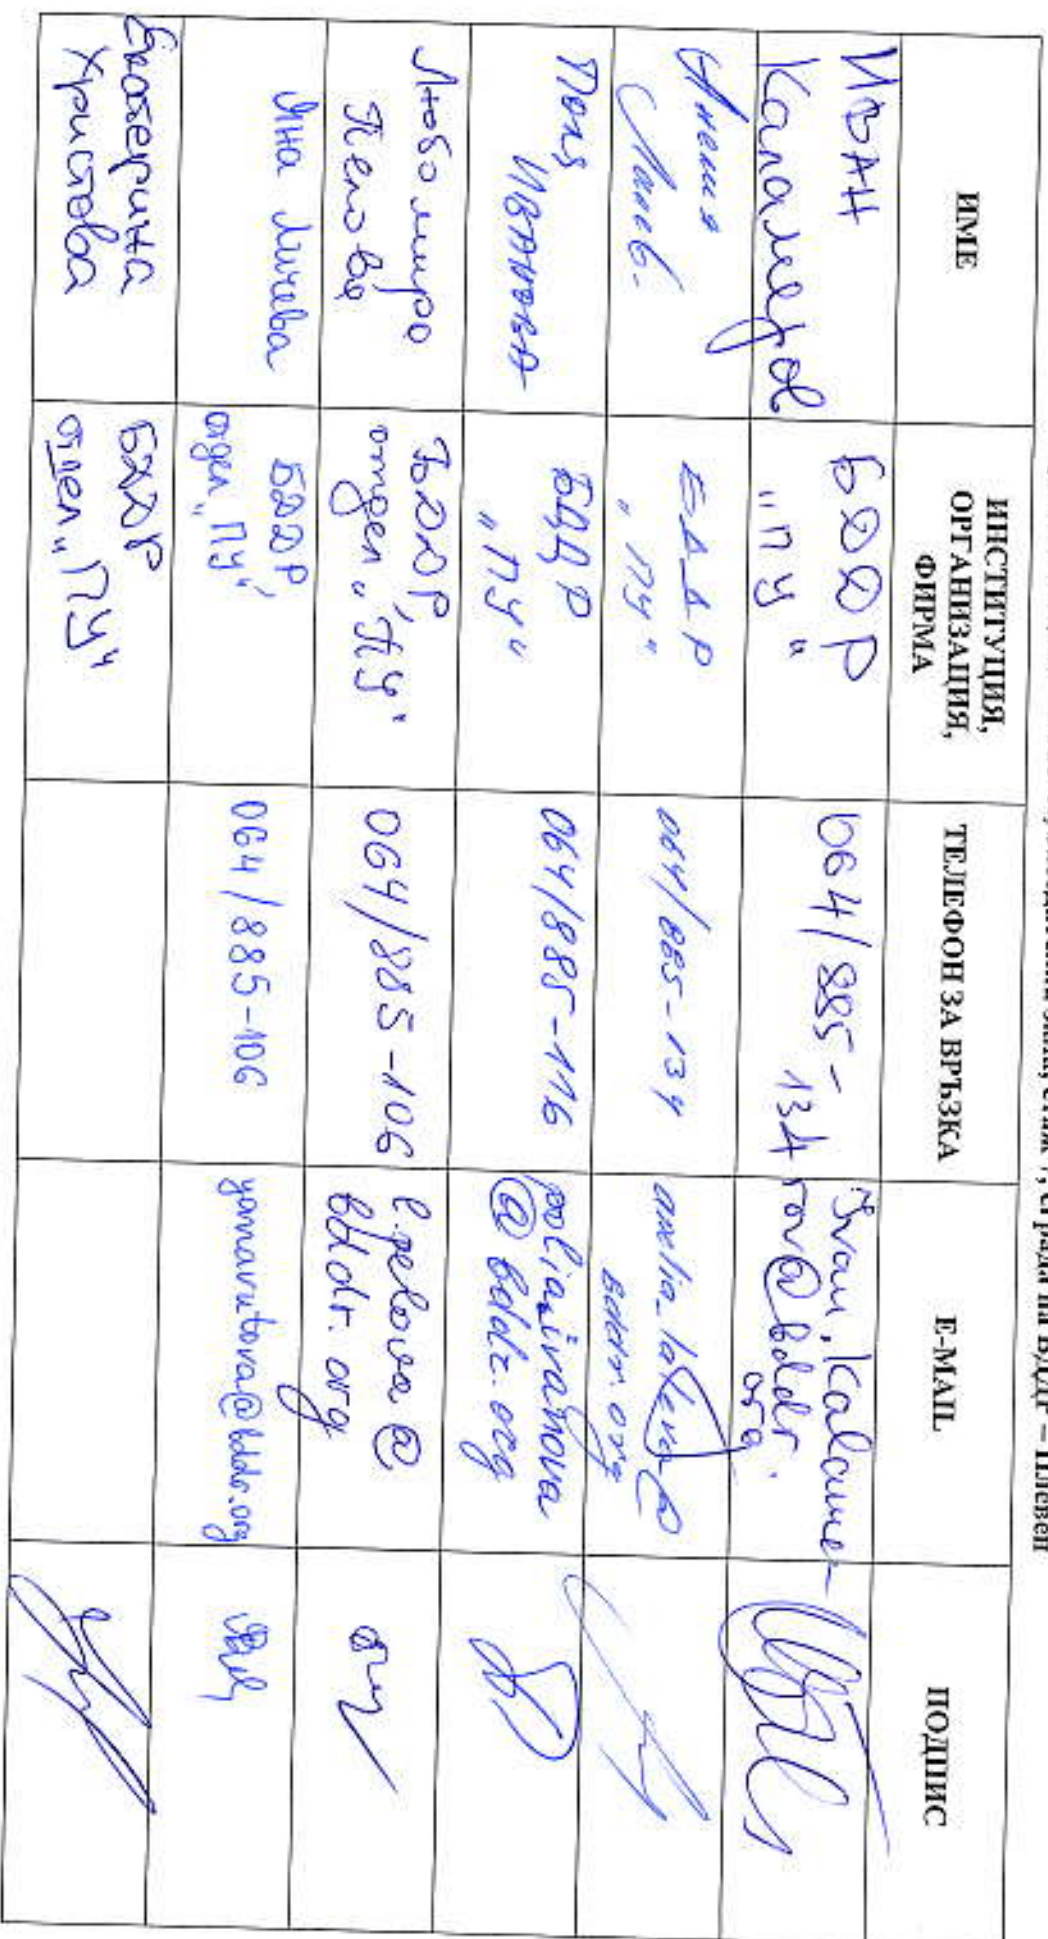 зала, етаж 7, сграда на БДДР – Плевен
ИМЕ
ИНСТИТУЦИЯ,
ОРГАНИЗАЦИЯ,
ФИРМА
ТЕЛЕФОН ЗА ВРЪЗКА
E-MAIL
ПОДПИС
ИВАН
Каламеров
БДДР
"ПУ"
064/885-
134
Ivan.Kalame-
rov@bddr.
org
Амелия
БДДР
"ПУ"
064/885-134
bddr.org
Поля
ИВАНОВА
БДДР
"ПУ"
064/885-116
polia.ivanova
@bddr.org
Любомира
Пелова
БДДР,
отдел "ПУ"
064/885-106
l.pelova@
bddr.org
Яна
БДДР,
отдел "ПУ"
064/885-106
Екатерина
Христова
БДДР
отдел "ПУ"